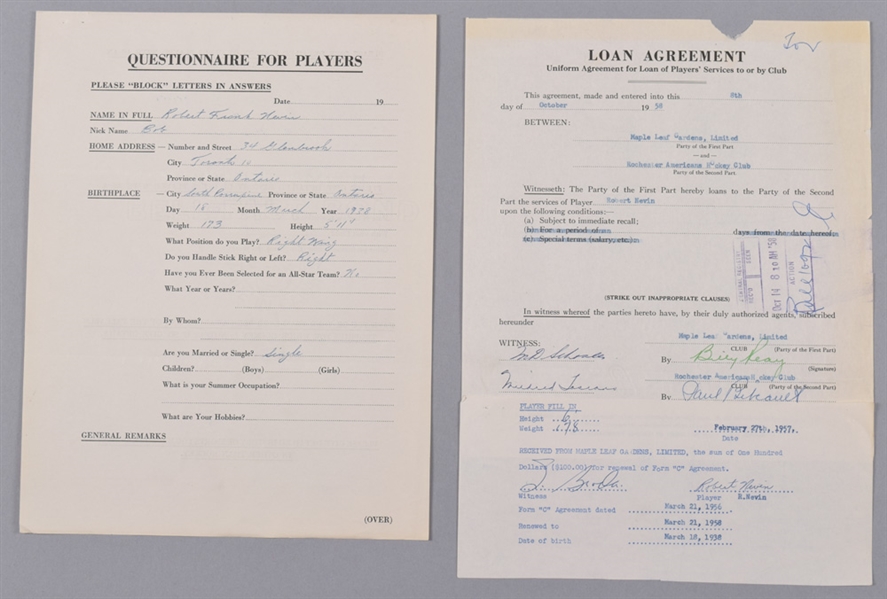 QUESTIONNAIRE FOR PLAYERS
PLEASE "BLOCK" LETTERS IN ANSWERS
Date 19
NAME IN FULL Robert Frank Nevin
Nick Name Bob
HOME ADDRESS — Number and Street 34 Glenbrook
City Toronto 10
Province or State Ontario
BIRTHPLACE — City South Porcupine Province or State Ontario
Day 18 Month March Year 1938
Weight 173 Height 5'11"
What Position do you Play? Right Wing
Do you Handle Stick Right or Left? Right
Have you Ever Been Selected for an All-Star Team? No
What Year or Years?
By Whom?
Are you Married or Single? Single
Children? (Boys) (Girls)
What is your Summer Occupation?
What are Your Hobbies?
GENERAL REMARKS
(OVER)
Tor
LOAN AGREEMENT
Uniform Agreement for Loan of Players' Services to or by Club
This agreement, made and entered into this 8th
day of October 1958
BETWEEN:
Maple Leaf Gardens, Limited
Party of the First Part
— and —
Rochester Americans Hockey Club
Party of the Second Part.
Witnesseth: The Party of the First Part hereby loans to the Party of the Second
Part the services of Player Robert Nevin
upon the following conditions:—
(a) Subject to immediate recall;
(b) For a period of an days from the date hereof.
(c) Special terms (salary, etc.)
Oct 14 8 10 AM '58
ACTION
(STRIKE OUT INAPPROPRIATE CLAUSES)
In witness whereof the parties hereto have, by their duly authorized agents, subscribed
hereunder
Maple Leaf Gardens, Limited
WITNESS: CLUB (Party of the First Part)
By Billy Reay
(Signature)
Rochester Americans Hockey Club
CLUB (Party of the Second Part)
Mildred
By Paul Pikault
PLAYER FILL IN
Height 6'
Weight 178
February 27th, 1957.
Date
RECEIVED FROM MAPLE LEAF GARDENS, LIMITED, the sum of One Hundred
Dollars ($100.00) for renewal of Form "C" Agreement.
Robert Nevin
Witness Player R.Nevin
Form "C" Agreement dated March 21, 1956
Renewed to March 21, 1958
Date of birth March 18, 1938